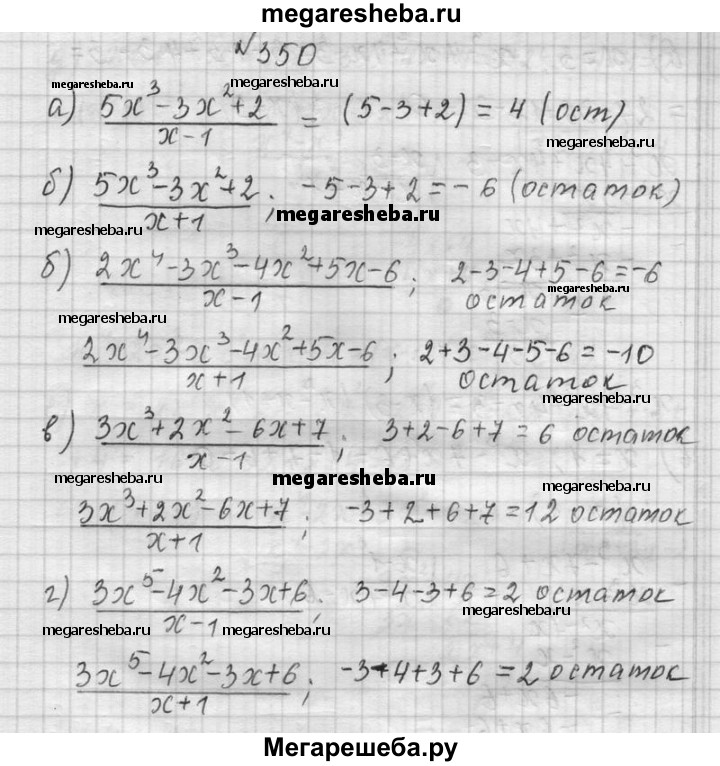 megaresheba.ru
№350
megaresheba.ru megaresheba.ru
а) 5x³-3x²+2 / x-1 = (5-3+2) = 4 (ост)
megaresheba.ru
б) 5x³-3x²+2 / x+1; -5-3+2=-6 (остаток)
megaresheba.ru megaresheba.ru
б) 2x⁴-3x³-4x²+5x-6 / x-1; 2-3-4+5-6=-6
megaresheba.ru
остаток
megaresheba.ru
2x⁴-3x³-4x²+5x-6 / x+1; 2+3-4-5-6=-10
остаток
megaresheba.ru
в) 3x³+2x²-6x+7 / x-1; 3+2-6+7=6 остаток
megaresheba.ru megaresheba.ru
megaresheba.ru
3x³+2x²-6x+7 / x+1; -3+2+6+7=12 остаток
г) 3x⁵-4x²-3x+6 / x-1; 3-4-3+6=2 остаток
megaresheba.ru
megaresheba.ru megaresheba.ru
3x⁵-4x²-3x+6 / x+1; -3-4+3+6=2 остаток
Мегарешеба.ру